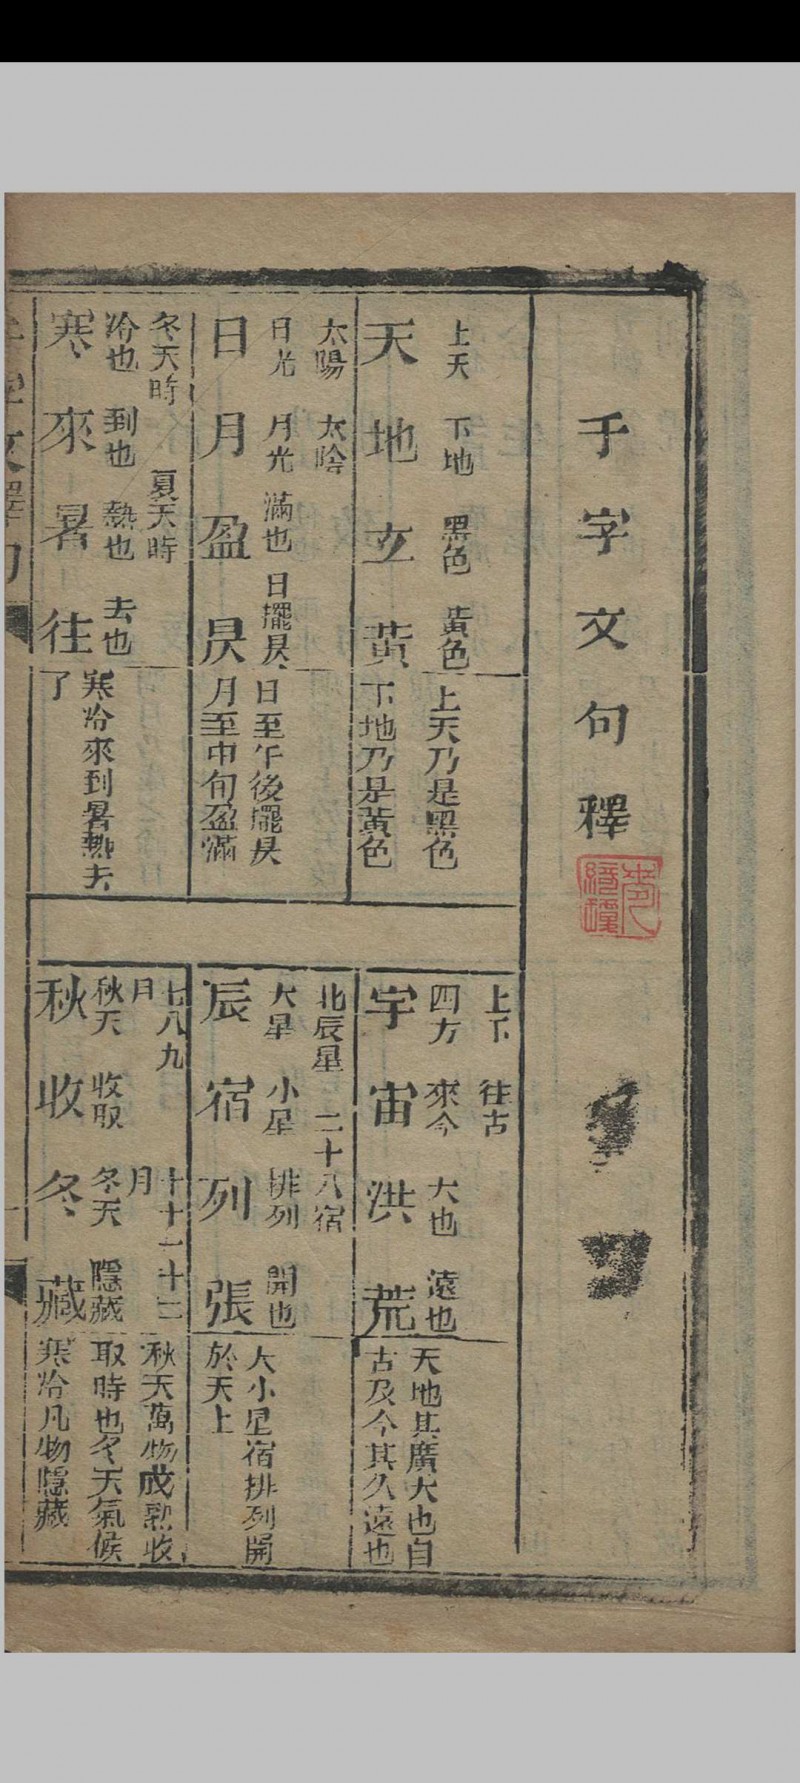 千字文句釋
上天 下地 黑色 黃色
天地玄黃
上天乃是黑色
下地乃是黃色
上下 往古
四方 來今 大也 遠也
宇宙洪荒
天地其廣大也自
古及今其久遠也
太陽 太陰
日光 月光 滿也 日擺昃
日月盈昃
日至午後擺昃
月至中旬盈滿
北辰星 二十八宿
大星 小星 排列 開也
辰宿列張
大小星宿排列開
於天上
冬天時 夏天時
冷也 到也 熱也 去也
寒來暑往
寒冷來到暑熱去
了
七八九月 十十一十二月
秋天 收取 冬天 隱藏
秋收冬藏
秋天萬物成熟收
取時也冬天氣候
寒冷凡物隱藏